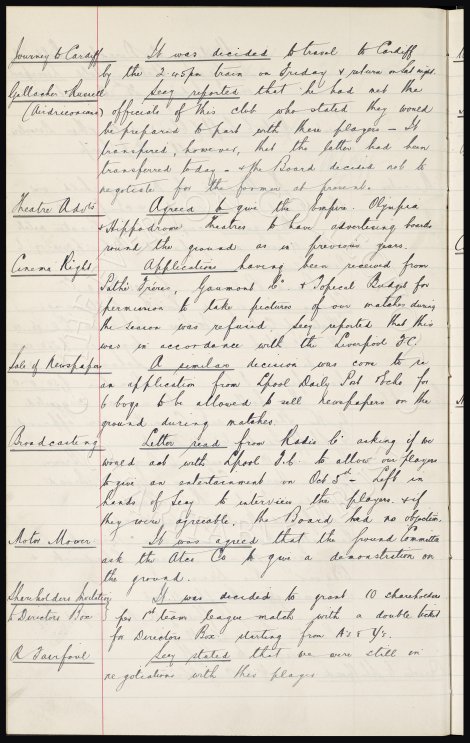 Journey to Cardiff It was decided to travel to Cardiff
by the 2.45pm train on Friday & return on Sat night.
Gallacher & Russell Secy reported that he had met the
(Airdrieonians) officials of this club who stated they would
be prepared to part with these players – It
transpired, however, that the latter had been
transferred today – & the Board decided not to
negotiate for the former at present.
Theatre Advts Agreed to give the Empire, Olympia
& Hippodrome Theatres to have advertising boards
round the ground as in previous years.
Cinema Rights Applications having been received from
Pathé Frères, Gaumont Co & Topical Budget for
permission to take pictures of our matches during
the season was refused. Secy reported that this
was in accordance with the Liverpool F.C.
Sale of Newspapers A similar decision was come to re
an application from Lpool Daily Post & Echo for
6 boys to be allowed to sell newspapers on the
ground during matches.
Broadcasting Letter read from Radio Co asking if we
would act with Lpool F.C. to allow our players
to give an entertainment on Oct 3rd – Left in
hands of Secy to interview the players & if
they were agreeable, the Board had no objection.
Motor Mower It was agreed that the ground Committee
ask the Atco Co to give a demonstration on
the ground.
Shareholders Invitations It was decided to grant 10 shareholders
to Directors Box per 1st team league match with a double ticket
for Directors Box starting from A's & Y's.
R Fairfoul Secy stated that we were still in
negotiations with this player